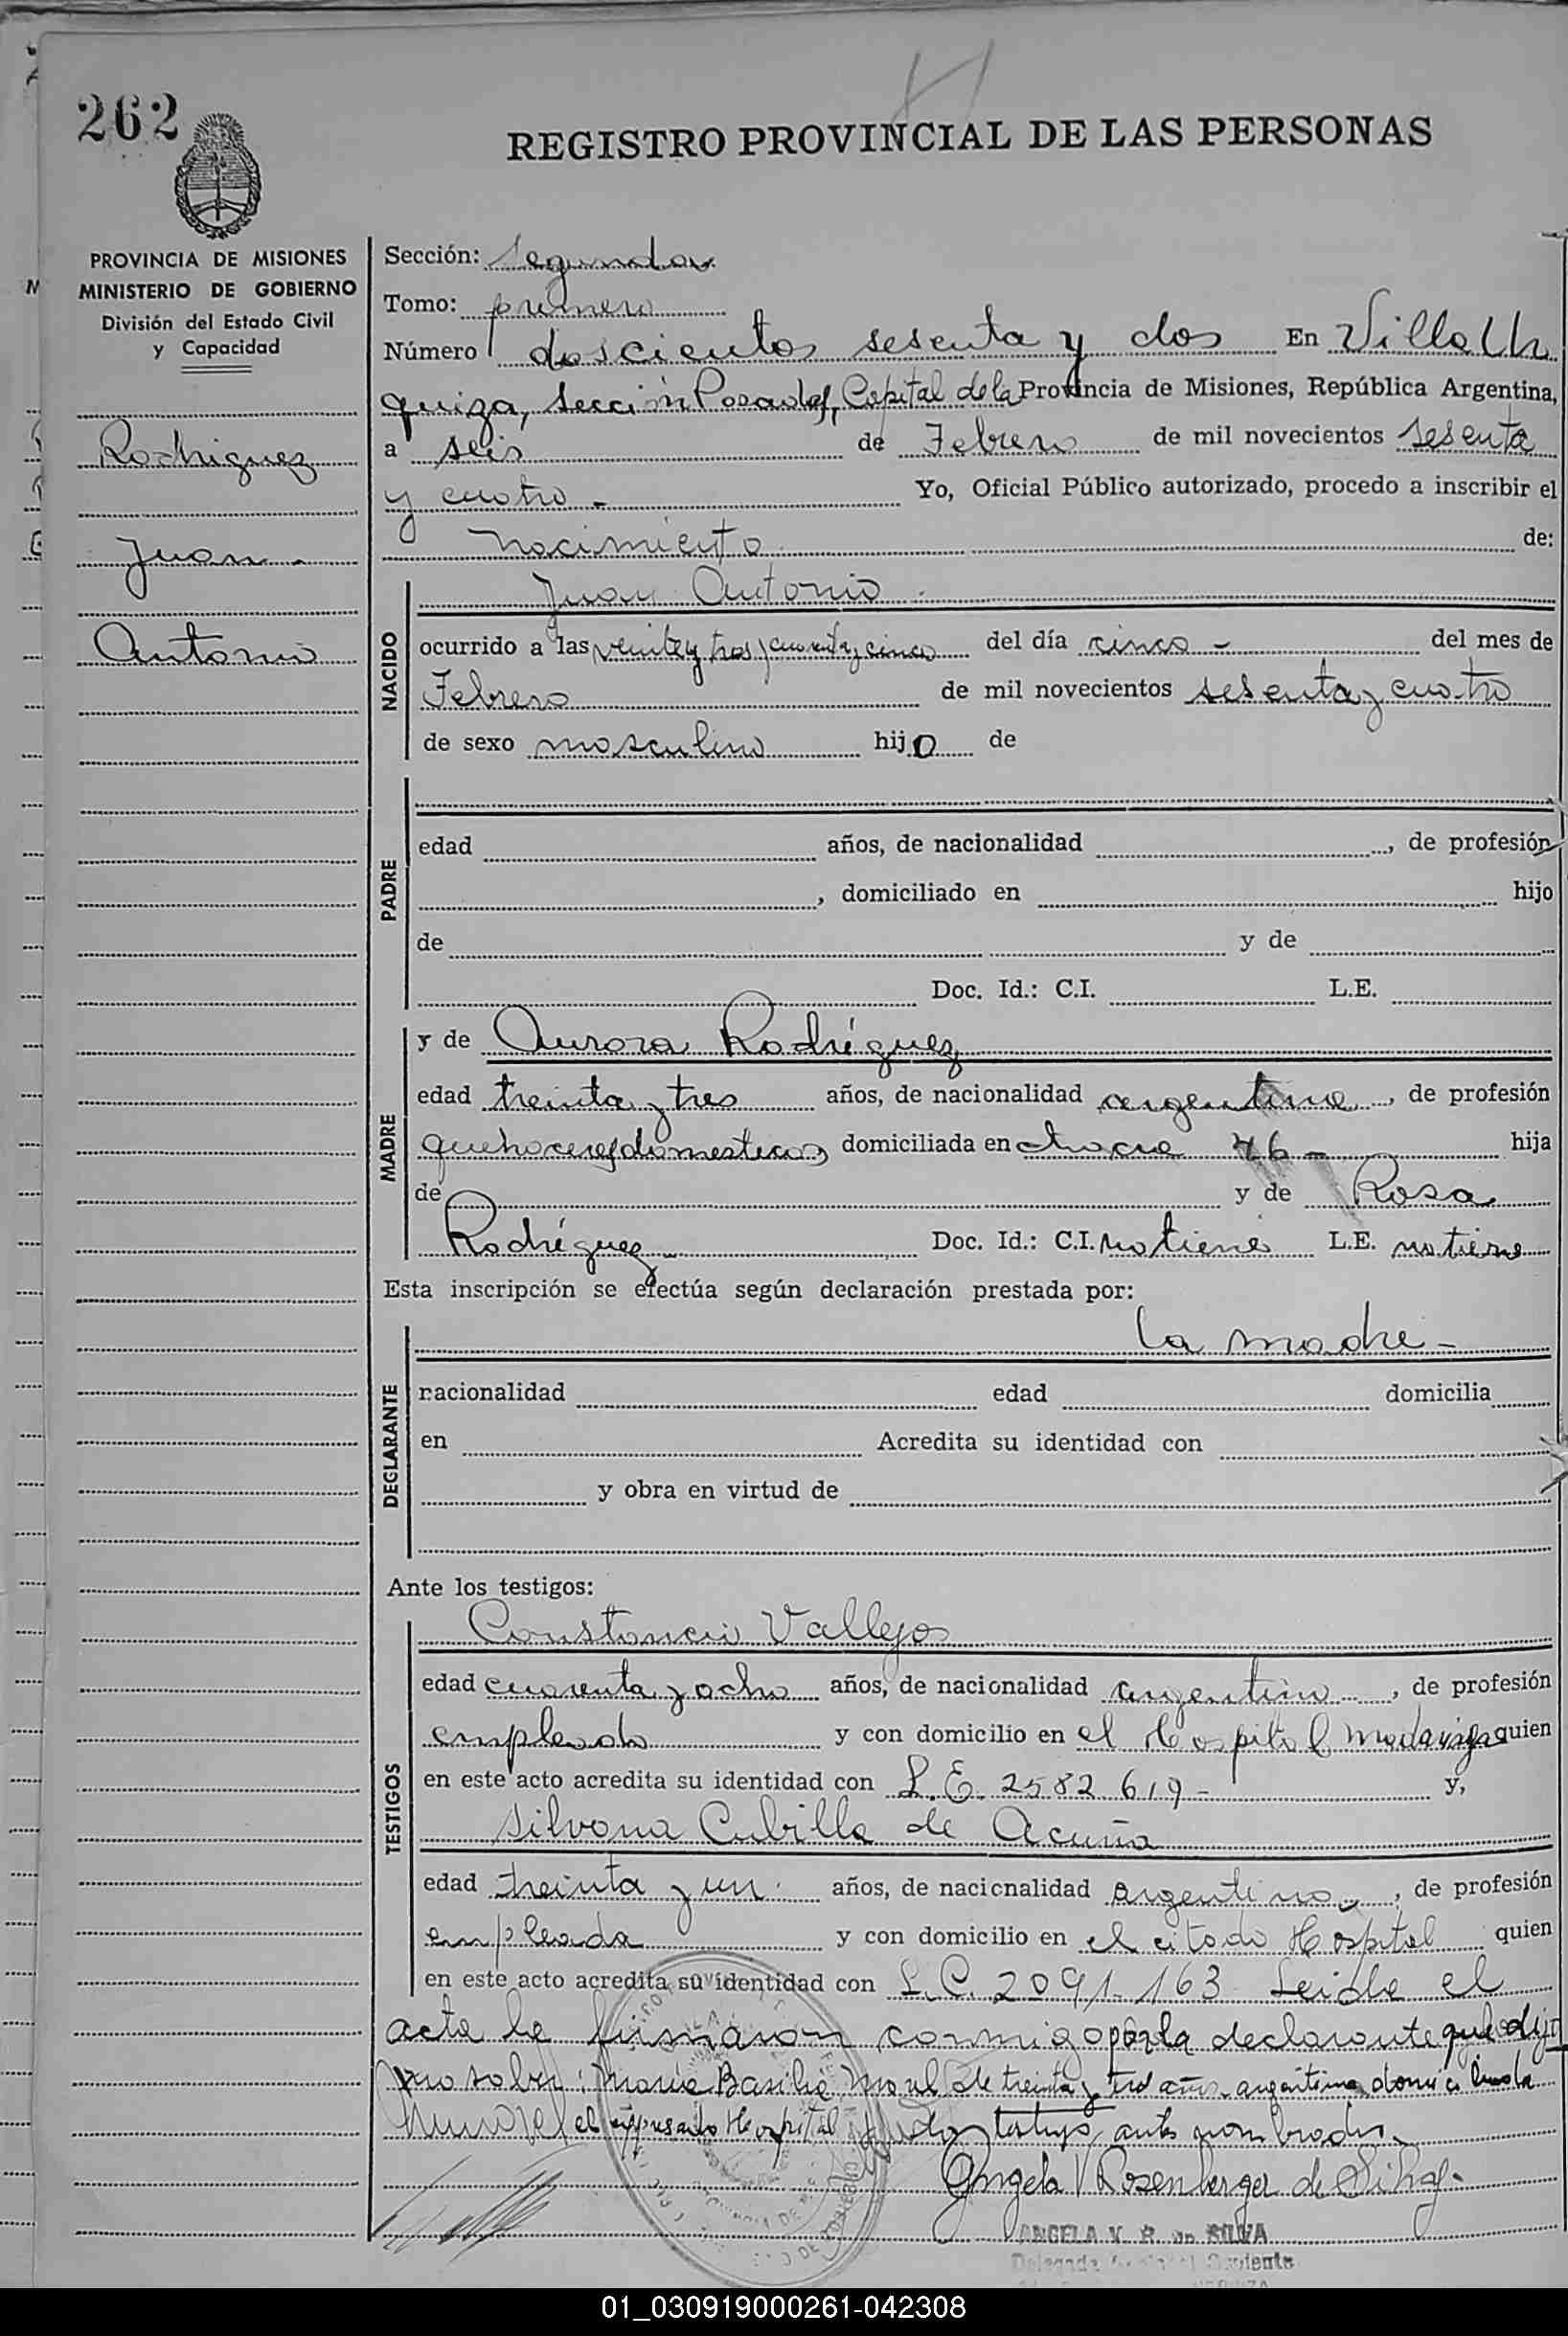 262
REGISTRO PROVINCIAL DE LAS PERSONAS
PROVINCIA DE MISIONES
MINISTERIO DE GOBIERNO
División del Estado Civil
y Capacidad
Rodriguez
Juan -
Antonio
Sección: Segunda
Tomo: primero
Número doscientos sesenta y dos En Villa Ur
quiza, Sección Posadas, Capital de la Provincia de Misiones, República Argentina,
a seis de Febrero de mil novecientos sesenta
y cuatro - Yo, Oficial Público autorizado, procedo a inscribir el
Nacimiento de:
NACIDO
Juan Antonio -
ocurrido a las veinte y tres y cuarenta y cinco del día cinco - del mes de
Febrero de mil novecientos sesenta y cuatro
de sexo masculino hijo de
PADRE
edad años, de nacionalidad , de profesión
, domiciliado en hijo
de y de
Doc. Id.: C.I. L.E.
MADRE
y de Aurora Rodríguez
edad treinta y tres años, de nacionalidad argentina, de profesión
quehaceres domesticos domiciliada en chacra 76 - hija
de y de Rosa
Rodríguez - Doc. Id.: C.I. no tiene L.E. no tiene
Esta inscripción se efectúa según declaración prestada por:
DECLARANTE
la madre -
nacionalidad edad domicilia
en Acredita su identidad con
y obra en virtud de
Ante los testigos:
TESTIGOS
Constancio Vallejos
edad cuarenta y ocho años, de nacionalidad argentino, de profesión
empleado y con domicilio en el Hospital Madariaga quien
en este acto acredita su identidad con L.E. 2582619 - y,
Silvana Cubilla de Acuña
edad treinta y un años, de nacionalidad argentina, de profesión
empleada y con domicilio en el citado Hospital quien
en este acto acredita su identidad con L.C. 2091.163 Leida el
acta la firmaron conmigo por la declarante que dijo
no saber: María Basilia de treinta y tres años argentina domiciliada
el expresado Hospital y los testigos antes nombrados.
Angela V Rosenberger de Silva.
ANGELA V. R. de SILVA
01_030919000261-042308